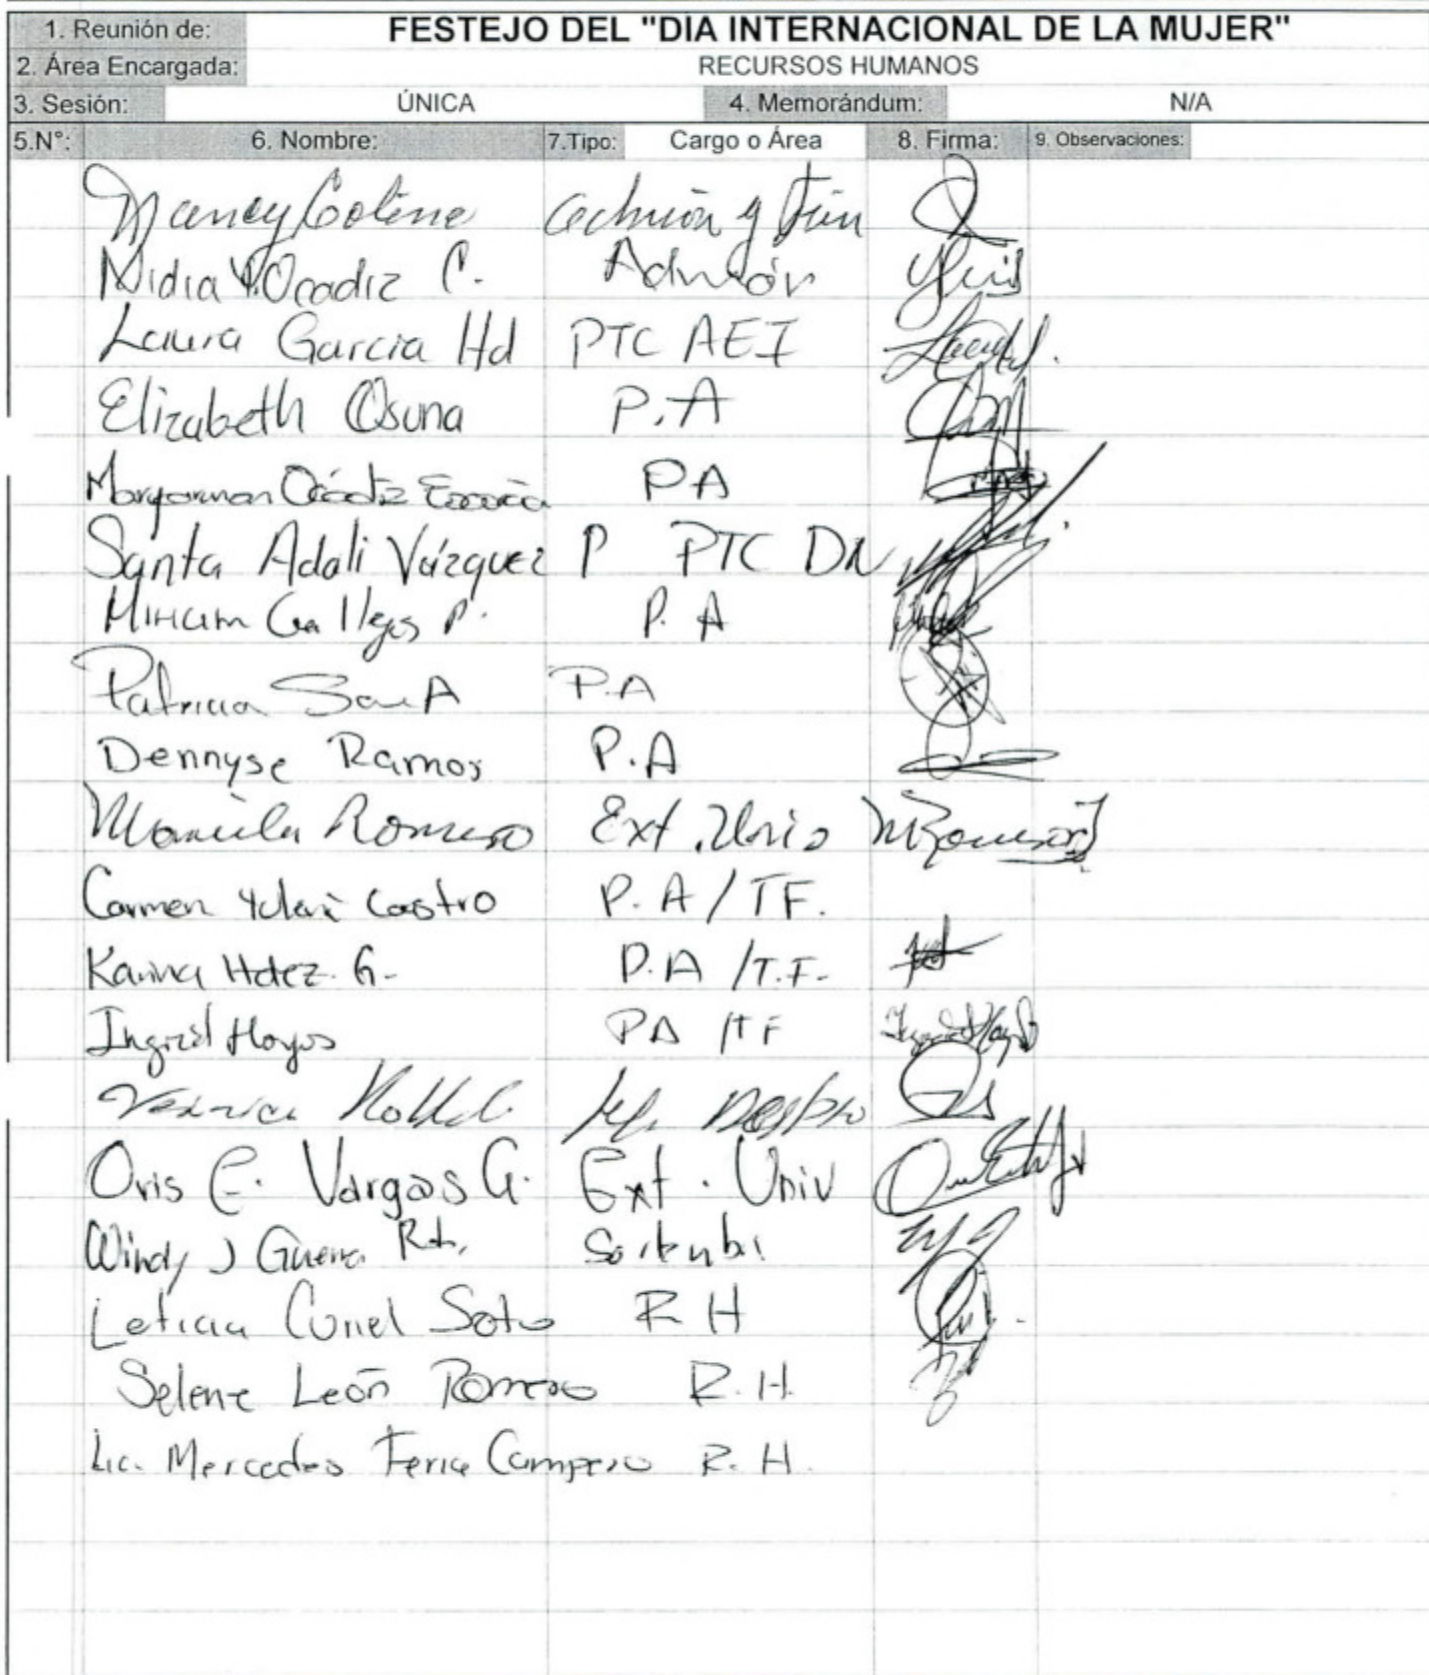 1. Reunión de: FESTEJO DEL "DÍA INTERNACIONAL DE LA MUJER"
2. Área Encargada: RECURSOS HUMANOS
3. Sesión: ÚNICA 4. Memorándum: N/A
5.N°: 6. Nombre: 7.Tipo: Cargo o Área 8. Firma: 9. Observaciones:
Nancy
Nidia Y. Ocadiz C. Admón
Laura Garcia Hd PTC AEI
Elizabeth Osuna P.A
Ocádiz PA
Santa Adali Vázquez P PTC DN
Miriam Gallegos P. P.A
Patricia P.A
Dennyse Ramos P.A
Romero Ext.
Carmen Castro P.A/TF.
Karina Hdez. G. P.A/T.F.
Ingrid Hoyos PA/TF
Oris E. Vargas G. Ext. Univ
Windy J Guerra
Leticia Curiel Soto RH
Selene León Romero R.H.
Lic. Mercedes Feria Campero R.H.